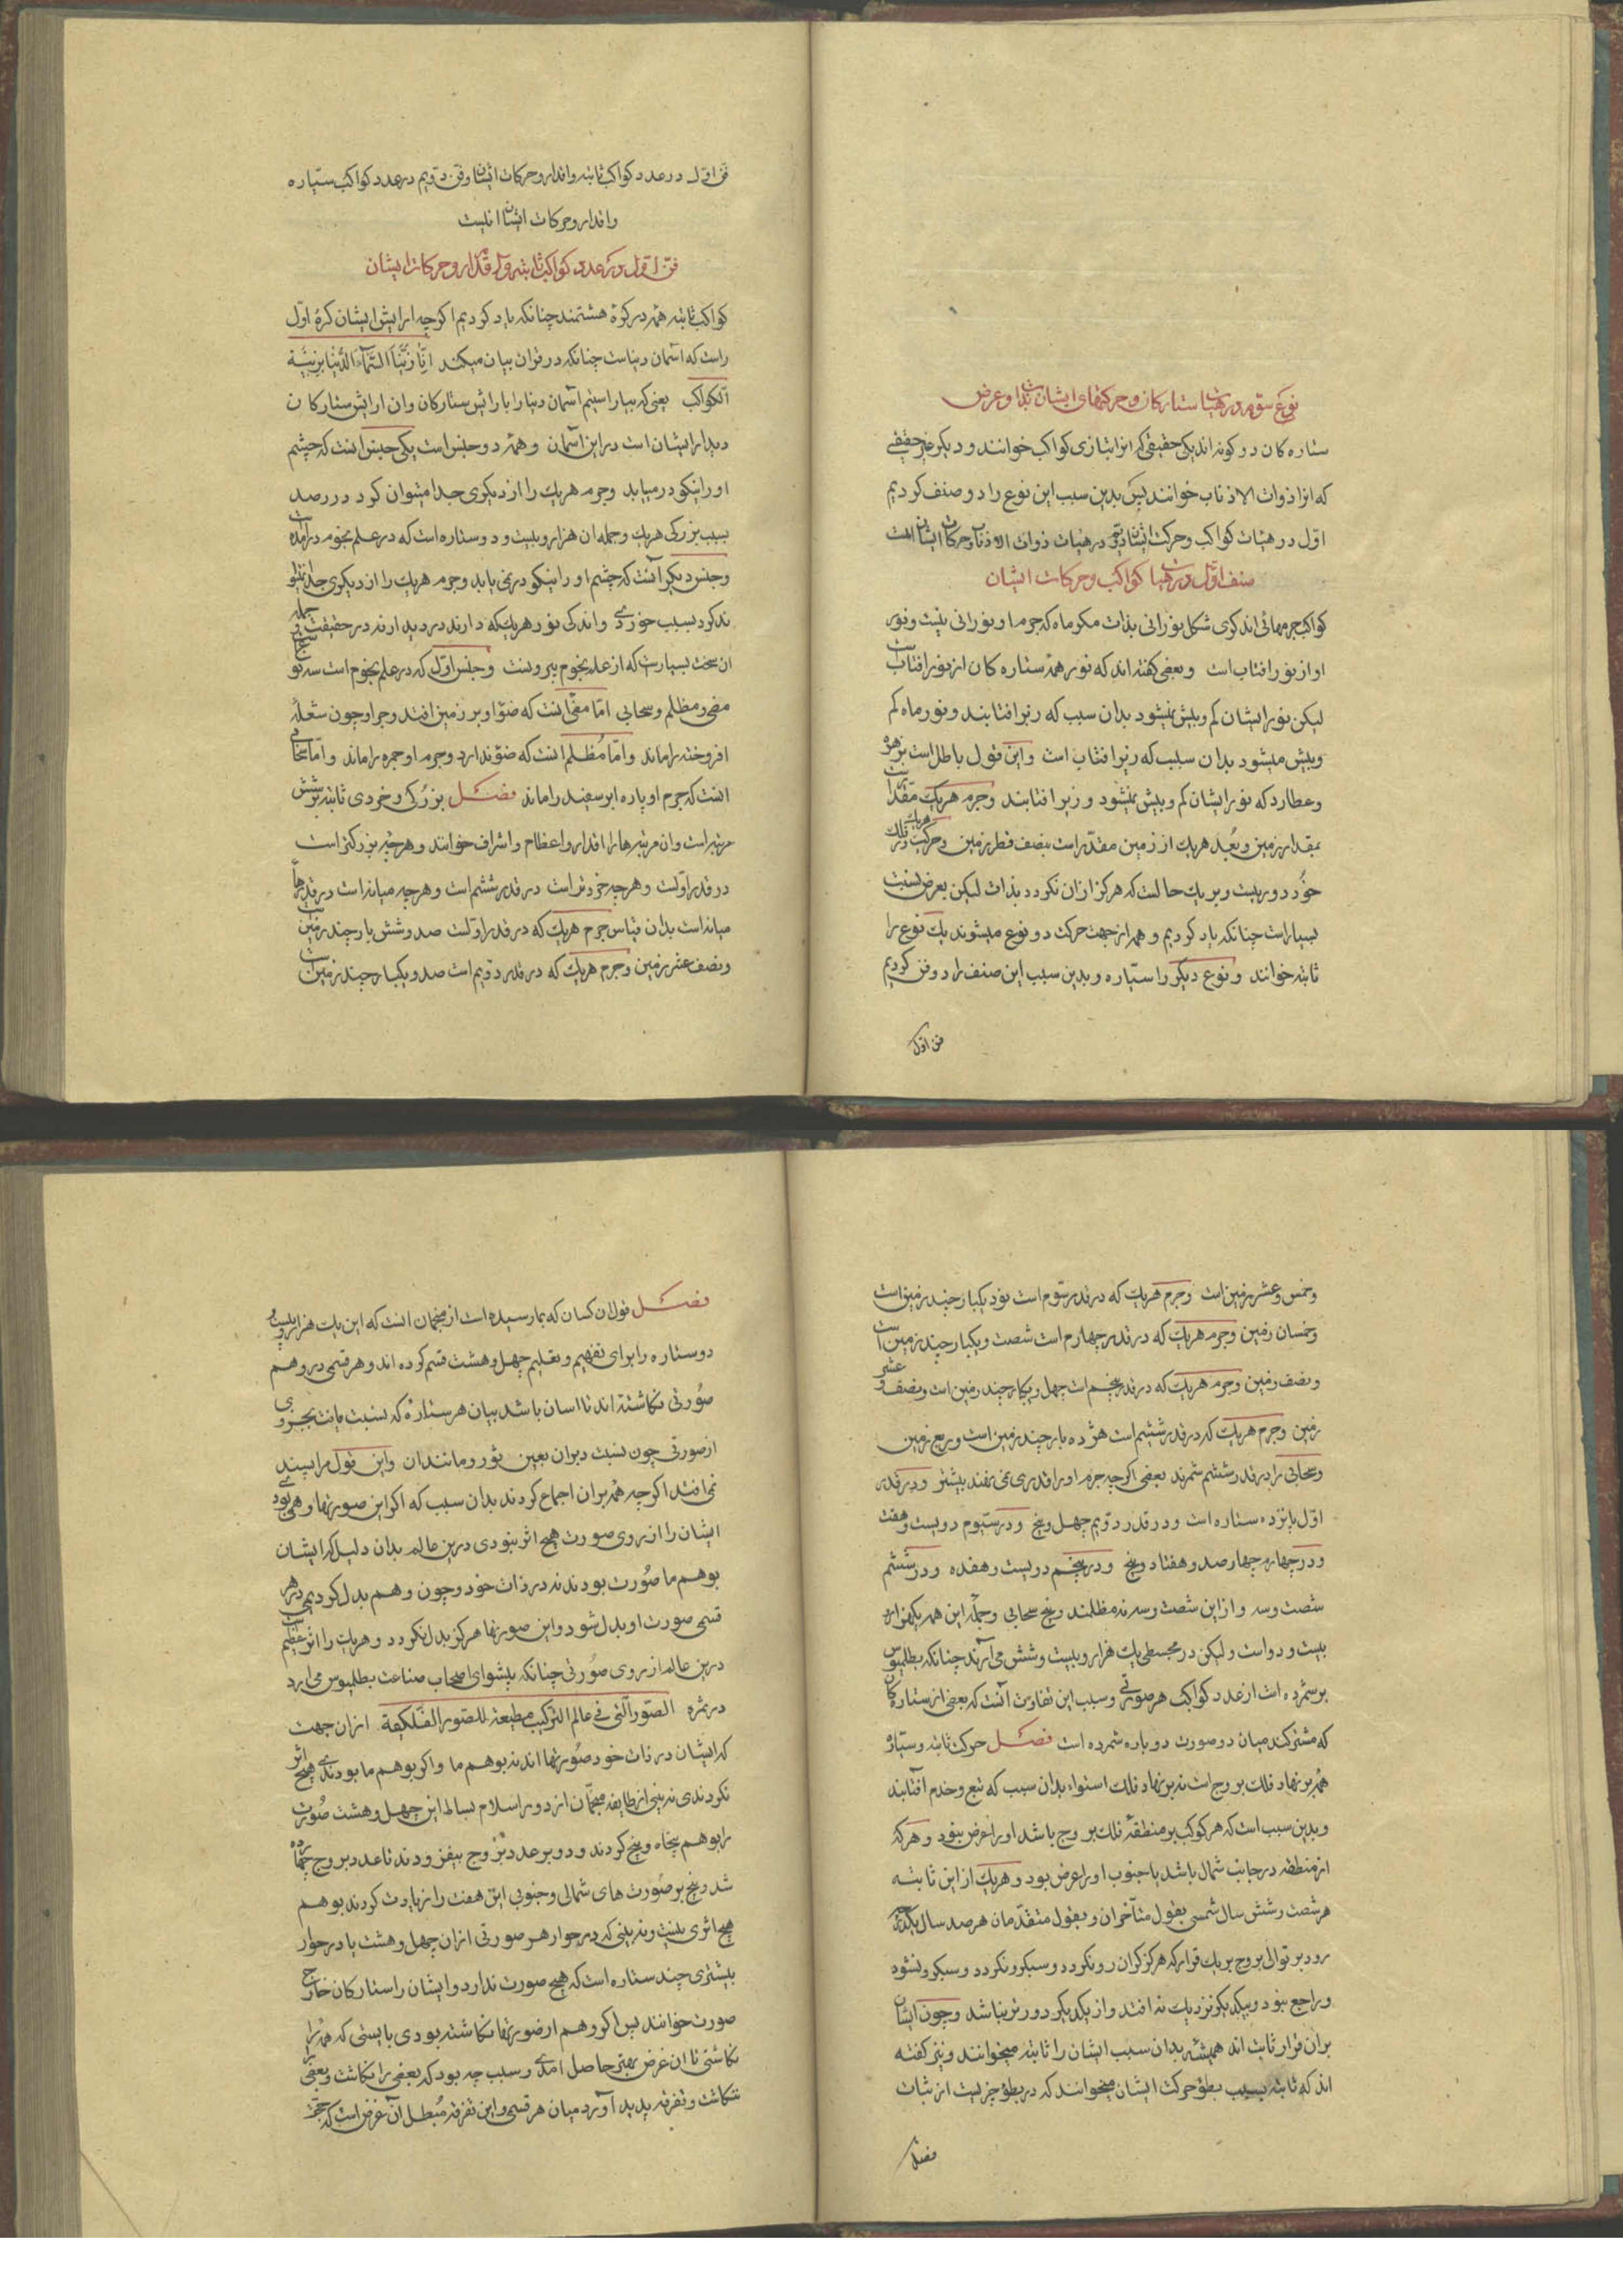 نوع سوم در هیات ستارکان و حرکتهای ایشان بذات و عرض
ستاره کان دو کونه اند یکی حقیقی که انرا بتازی کواکب خوانند و دیکر غیر حقیقے
که انرا ذوات الاذناب خوانند پس بدین سبب این نوع را دو صنف کردیم
اوّل در هیات کواکب و حرکت ایشان دوم در هیات ذوات الاذناب و حرکات ایشان است
صنف اوّل در هیات کواکب و حرکات ایشان
کواکب جرمهائی اند کری شکل نورانی بذات مکر ماه که جرم او نورانی نیست و نور
او از نور افتاب است و بعضی کفته اند که نور همه ستاره کان از نور افتاب است
لیکن نور ایشان کم و بیش نمیشود بدان سبب که زبر افتابند و نور ماه کم
و بیش میشود بدان سبب که زیر افتاب است و این قول باطل است بزهره
و عطارد که نور ایشان کم و بیش نمیشود و زیر افتابند و جرم هریک مقدر است
بمقدار زمین و بُعد هریک از زمین مقدر است بنصف قطر زمین و حرکت هریک در فلک
خود دوریست و بر یک حالست که هرکز از ان نکردد بذات لیکن بعرض بنسبت
بسیار است چنانکه یاد کردیم و هم از جهت حرکت دو نوع میشوند یک نوع را
ثابته خوانند و نوع دیکر را سیّاره و بدین سبب این صنف را دو فن کردیم
فن اوّل
فن اوّل در عدد کواکب ثابته و اقدار و حرکات ایشان و فن دوّیم در عدد کواکب سیّاره
و اقدار و حرکات ایشان اینست
فنّ اوّل در عدد کواکب ثابته و اقدار و حرکات ایشان
کواکب ثابته همه در کرهٔ هشتمند چنانکه یاد کردیم اکرچه ارایش ایشان کرهٔ اوّل
راست که اسمان دنیاست چنانکه در قران بیان میکند اِنّا زَیَّنّا السَّمآءَ الدُّنْیا بِزینَةٍ
الکواکب یعنی که بیاراستیم اسمان دنیا را بارایش ستارکان و ان ارایش ستارکان
دیدار ایشان است در این آسمان و همه دو جنس است یکی جنس انست که چشم
او را نیکو درمیابد و جرم هریک را از دیکری جدا میتوان کرد در رصد
بسبب بزرکی هریک و جمله ان هزار و بیست و دو ستاره است که در علم نجوم درامده است
و جنس دیکر آنست که چشم او را نیکو در نمی یابد و جرم هریک را از دیکری جدا نتوا
ند کرد بسبب خوردی و اندکی نور هریک که دارند در دیدارند در حقیقت و جمله
ان سخت بسیارست که از علم نجوم بیرونست و جنس اوّل که در علم نجوم است سه نوع
مضی و مظلم و سحابی امّا مضئ انست که ضوء او بر زمین افتد و جرم او چون شعلهٔ
افروخته را ماند و امّا مُظلم انست که ضوء ندارد و جرم او جمره را ماند و امّا سحابی
انست که جرم او پاره ابر سفید را ماند فصل بزرُکی و خردی ثابته بر شش
مرتبه است و ان مرتبه ها را اقدار و اعظام و اشراف خوانند و هرچه بزرکتر است
در قدر اوّلست و هرچه خردتر است در قدر ششم است و هرچه میانه است در قدرهاء
میانه است بدان قیاس جرم هریک که در قدر اوّلست صد و شش بار چند زمین است
و نصف عشر زمین و جرم هریک که در قدر دوّیم است صد و یکبار چند زمین است
و خمس و عشر زمین است و جرم هریک که در قدر سوّم است نود یکبار چند زمین است
و خمسان زمین و جرم هریک که در قدر چهارم است شصت و یکبار چند زمین است
و نصف زمین و جرم هریک که در قدر پنجم است چهل و یکبار چند زمین است و نصف و عشر
زمین و جرم هریک که در قدر ششم است هژده بار چند زمین است و ربع زمین
و سحابی را در قدر ششم شمرند بعضی اکرچه جرم او را قدری نمی نهند بیشتر و در قدر
اوّل پانزده ستاره است و در قدر دوّیم چهل و پنج و در ستوم دویست و هفت
و در چهارم چهارصد و هفتاد و پنج و در پنجم دویست و هفده و در ششم
شصت و سه و از این شصت و سه نه مظلمند و پنج سحابی و جمله این همه یکهزار و
بیست و دو است و لیکن در مجسطی یک هزار و بیست و شش می آرند چنانکه بطلمیوس
برشمرده است از عدد کواکب هر صورتی و سبب این تفاوت آنست که بعضی از ستاره کان
که مشترکند میان دو صورت دوباره شمرده است فصل حرکت ثابته و سیاره
هم بر نهاد فلک بروج است نه بر نهاد فلک استواء بدان سبب که تبع و خدم آفتابند
و بدین سبب است که هر کوکب بر منطقهٔ فلک بروج باشد او را عرض نبود و هر که
از منطقه در جانب شمال باشد یا جنوب او را عرض بود و هریک از این ثابته
هر شصت و شش سال شمسی بقول متأخران و بقول متقدّمان هر صد سال یکدرجه
رود بر توالی بروج بریک قرار که هرکز کران رو نکردد و سبکرو نکردد و سبکرو نشود
و راجع نبود و بیکدیکر نزدیک نه افتد و از یکدیکر دورتر نباشد و چون ایشان
بران قرار ثابت اند همیشه بدان سبب ایشان را ثابته میخوانند و نیز کفته
اند که ثابته بسبب بطؤ حرکت ایشان میخوانند که در بطؤ چیزیست از ثبات
فصل
فصل قول ان کسان که بما رسیده است از منجمان انست که این یک هزار و بیست و
دو ستاره را برای تفهیم و تعلیم چهل و هشت قسم کرده اند و هر قسمی در وهم
صُورتی نکاشته اند تا اسان باشد بیان هر ستاره که نسبت یافت بجزوی
از صورتی چون نسبت دبران بعین ثور و مانند ان و این قول مرا پسند
نمی افتد اکرچه همه بران اجماع کردند بدان سبب که اکر این صورتها وهمی بودے
ایشان را از روی صورت هیچ اثر نبودی درین عالم بدان دلیل که ایشان
بوهم ما صُورت بودند نه در ذات خود و چون وهم بدل کردیمی در هر
قسمی صورت او بدل شود و این صورتها هرکز بدل نکردد و هریک را اثر عظیم است
درین عالم از روی صُورتی چنانکه پیشوای اصحاب صناعت بطلمیوس می ارد
در ثمره الصّور الّتی فی عالم الترکیب مطیعة للصّور الفلکیّة ازان جهت
که ایشان در ذات خود صُورتها اند نه بوهم ما و اکر بوهم ما بودندے هیچ اثر
نکردندی نه بینی از طایفه منجّمان از دور اسلام بساط این چهل و هشت صُورت
را بوهم پنجاه و پنج کردند و دو بر عدد بروج بیفزودند تا عدد بروج چهارده
شد و پنج بر صُورت های شمالی و جنوبی این هفت را زیادت کردند بوهم
هیچ اثری نیست و نه بینی که در جوار هر صورتی ازان چهل و هشت یا در جوار
بیشتری چند ستاره است که هیچ صورت ندارد و ایشان را ستارکان خارج
صورت خوانند پس اکر وهم ار صورتها نکاشته بودی بایستی که همه را
نکاشتی تا ان غرض بهتر حاصل امدی و سبب چه بود که بعضی را نکاشت و بعضی
ننکاشت و تفرقه پدید آورد میان هر قسمی و این تفرقه مُبطل آن غرض است که